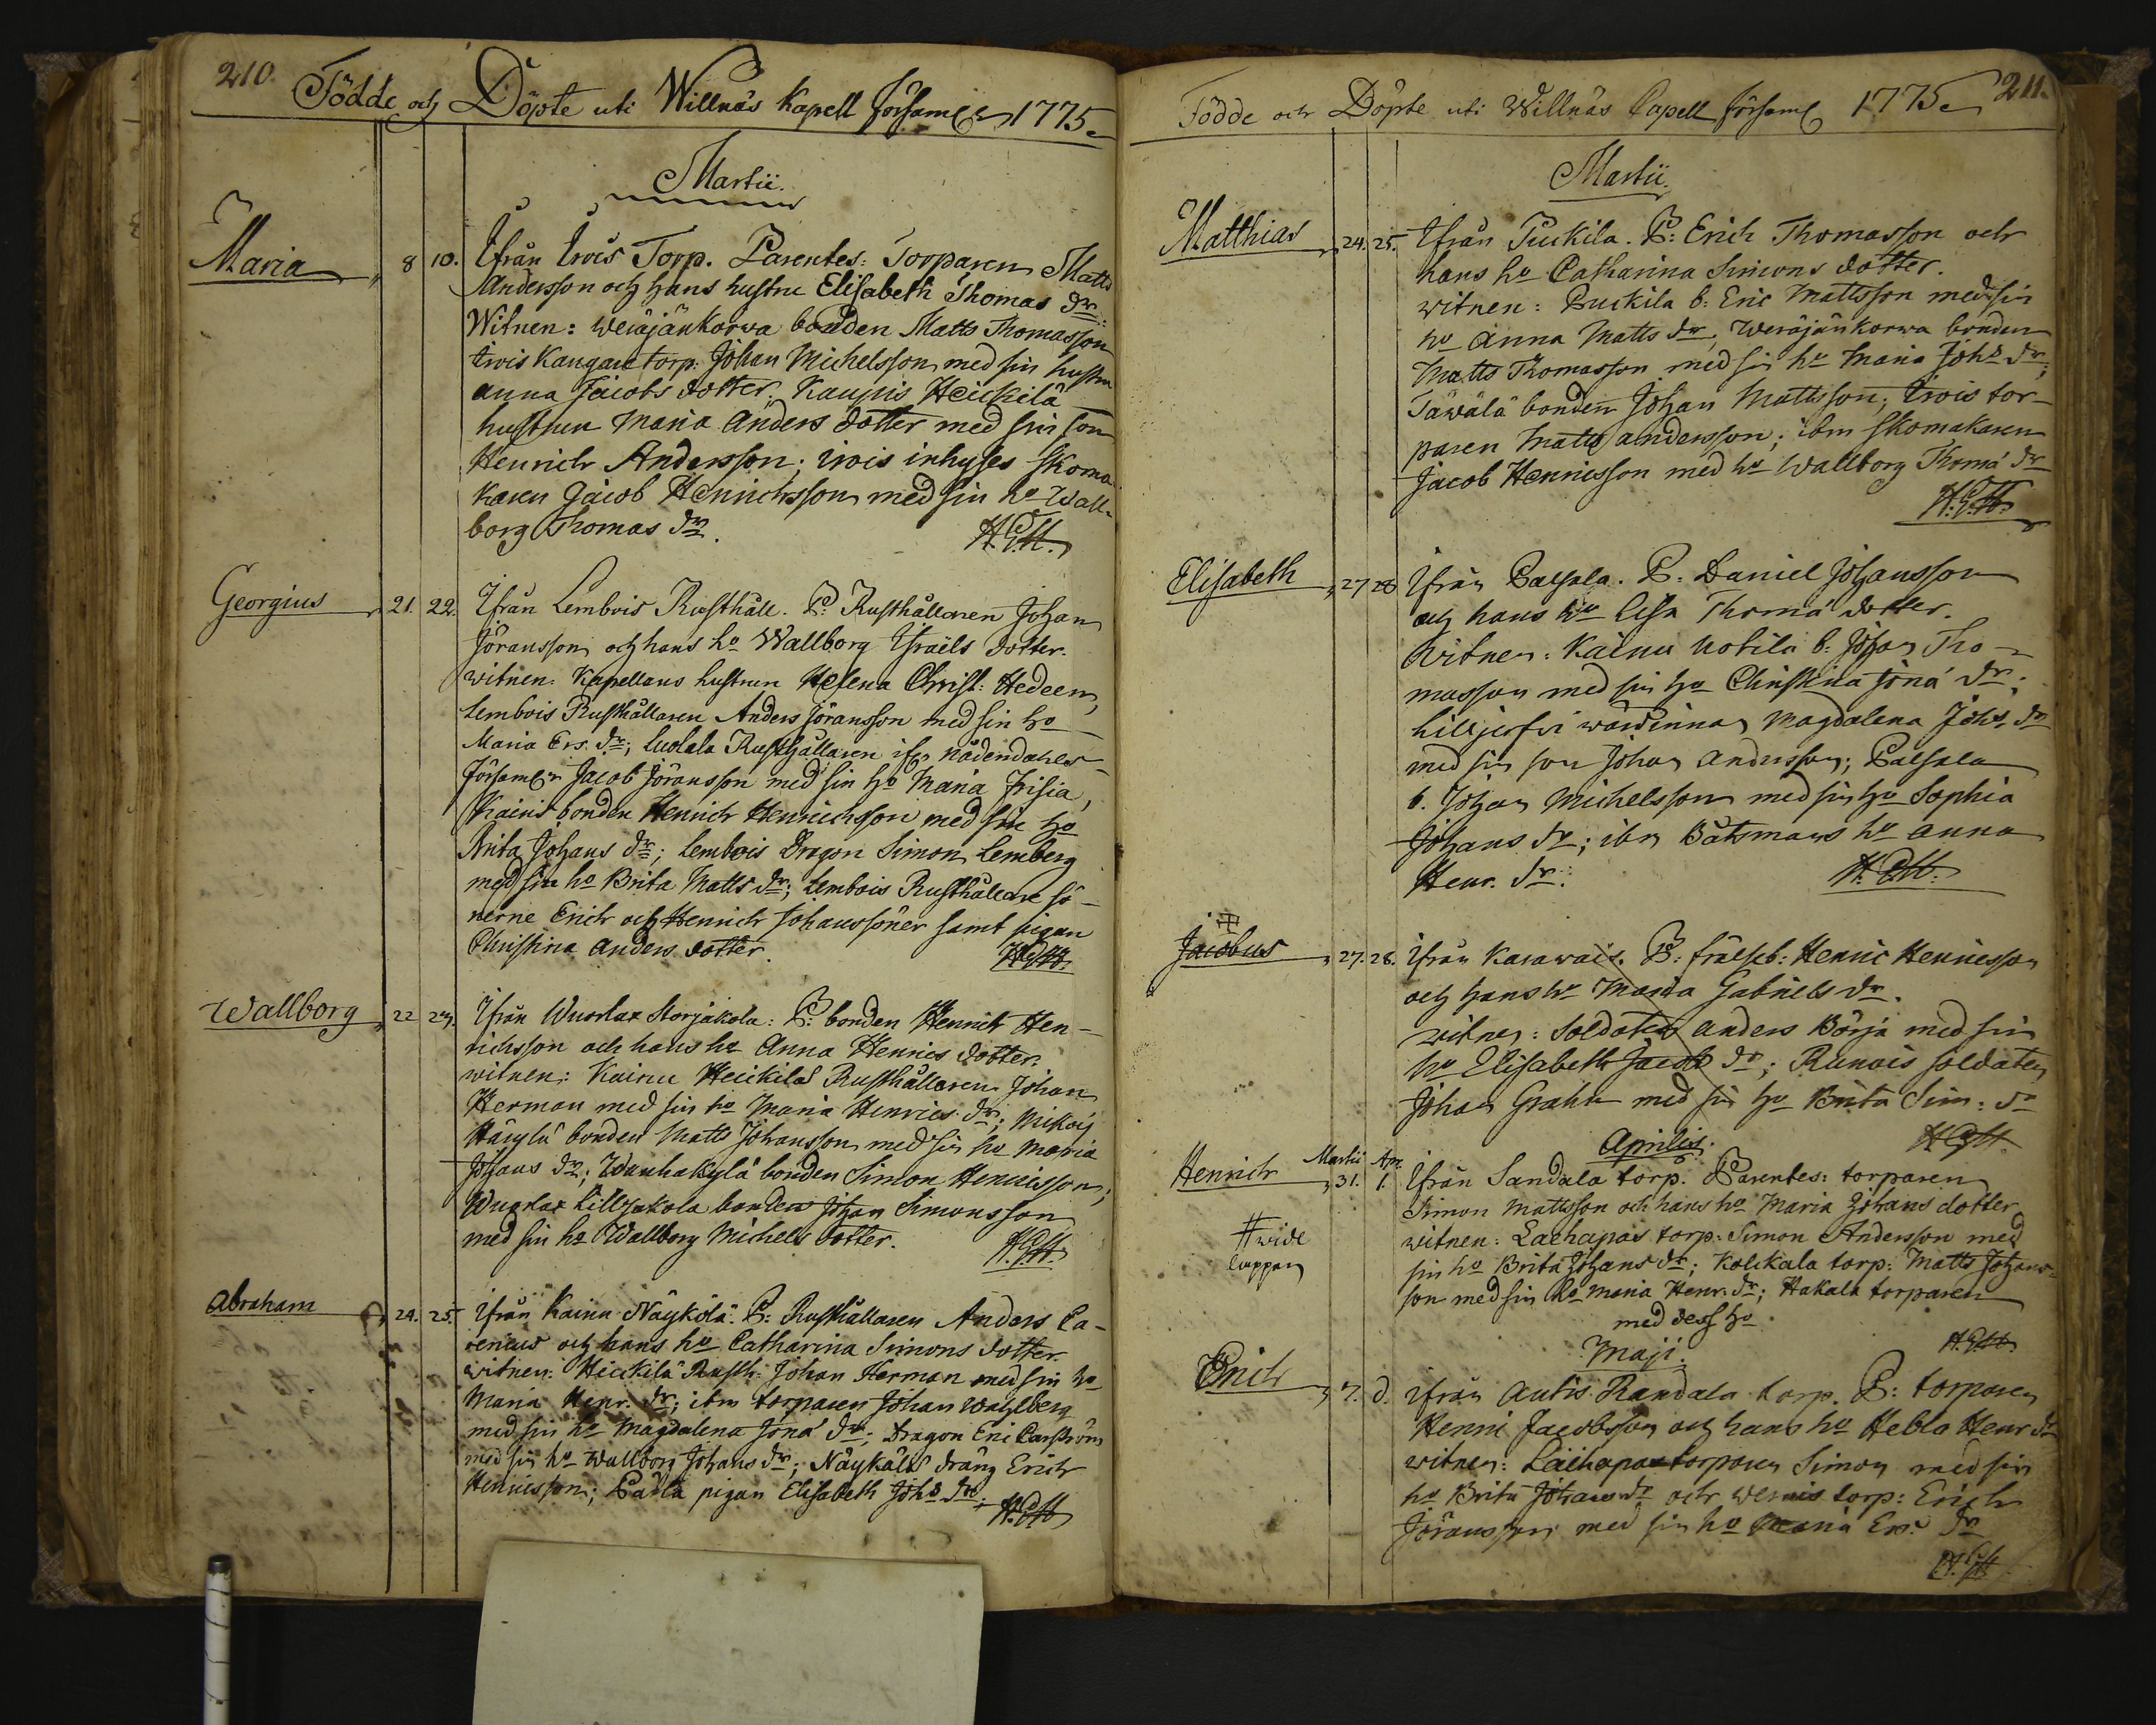 210.
Födde och Döpte uti Willnäs Kapell Församl: 1775.
Martii.
Maria 8 10. Ifrån Irois Torp. Parentes: Torparen Matts
Andersson och hans hustru Elisabeth Thomas dr:
Witnen: Weräjänkorwa bonden Matts Thomasson
Irois Kangare torp: Johan Michelsson med sin hustru
Anna Jacobs dotter; Kaupis Heickilä
hustrun Maria Anders dotter med sin son
Henrich Andersson; Irois inhyses Skoma
karen Jacob Henrichsson med sin ho Wall-
borg Thomas dr.
Georgius 21. 22. Ifrån Lembois Rusthåll. P: Rusthållaren Johan
Jöransson och hans ho Wallborg Israels dotter.
witnen: Kapellans hustrun Helena Christ: Hedeen,
Lembois Rusthållaren Anders Jöransson med sin ho
Maria Ers. dr; Luolala Rusthållaren ifr. Nådendahls
Församl: Jacob Jöransson med sin ho Maria Frisia,
Kainis bonden Henrich Henrichsson med sin ho
Anita Johans dr; Lembois Dragon Simon Lemberg
med sin ho Brita Matts dr; Lembois Rusthållare sö-
nerne Erich och Henrich Johanssöner samt pigan
Christina Anders dotter.
Wallborg 22 24. Ifrån Wuorlax Storjakola: P: bonden Henrich Hen-
richsson och hans ho Anna Henrics dotter.
witnen: Kainu Heickilas Rusthållaren Johan
Herman med sin ho Maria Henrics dr; Mikoij
Häyylä bonden Matts Johansson med sin ho Maria
Johans dr; Wanhakylä bonden Simon Henricsson;
Wuorlax Lilljakola bonden Johan Simonsson
med sin ho Wallborg Michels dotter.
Abraham 24. 25. Ifrån Kainu Näykölä. P: Rusthållaren Anders Ca-
renius och hans ho Catharina Simons dotter.
witnen: Heickilä Rusth: Johan Herman med sin ho
Maria Henr. dr; ibm torparen Johan Wahlberg
med sin ho Magdalena Jona dr; Dragon Eric Carström
med sin ho Wallborg Johans dr; Näykäläs dräng Erich
Henricsson; Padla pigan Elisabeth Johs dr;
Födde och Döpte uti Willnäs Capell församl 1775 211.
Martii.
Matthias 24. 25. Ifrån Puckila. P: Erich Thomasson och
hans ho Catharina Simons dotter.
witnen: Puckila b: Eric Mattsson med sin
ho Anna Matts dr, Weräjänkorwa bonden
Matts Thomasson med sin ho Maria Johs dr;
Täwälä bonden Johan Mattsson; Irois tor-
paren Matts Andersson; ibm Skomakaren
Jacob Henricsson med ho Wallborg Thoma dr
Elisabeth 27 28 Ifrån Palsala. P: Daniel Johansson
och hans ho Lisa Thoma dotter.
Witnen: Kainu Uotila b: Johan Tho-
masson med sin ho Christina Jona dr;
wärdinnan Magdalena Johs dr
med sin son Johan Andersson; Palsala
b. Johan Michelsson med sin ho Sophia
Johans dr; ibm Båtsmans ho Anna
Henr. dr.
Jacobus 27. 28. Ifrån Karawais. P: frälseb: Henric Henricsson
och hans ho Maria Gabriels dr.
witnen: Soldaten Anders Börja med sin
ho Elisabeth Jacobs dr; Runois soldaten
Johan Grahn med sin ho Brita Sim: dr
Aprilis.
Henrich Martii 31. Apr. 1. Ifrån Sandala torp. Parentes: torparen
Simon Mattsson och hans ho Maria Johans dotter
witnen: Laehapais torp: Simon Andersson med
sin ho Brita Johans dr; Kolckala torp: Matts Johans-
son med sin ho Maria Henr: dr; Hakala torparen
med dess ho.
# wide
lappen
Maji.
Erich 7. d. Ifrån Autis Randala torp. P: torparen
Henric Jacobsson och hans ho Hebla Henr dr
witnen: Laihapas torparen Simon med sin
ho Brita Johans dr och Wernis torp: Erich
Jöransson med sin ho Maria Ers. dr